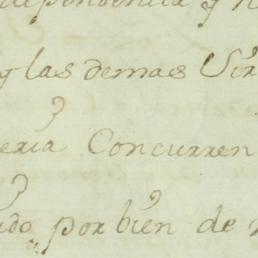 dependencia y
y las demas
eria Concurren
ado por bien de